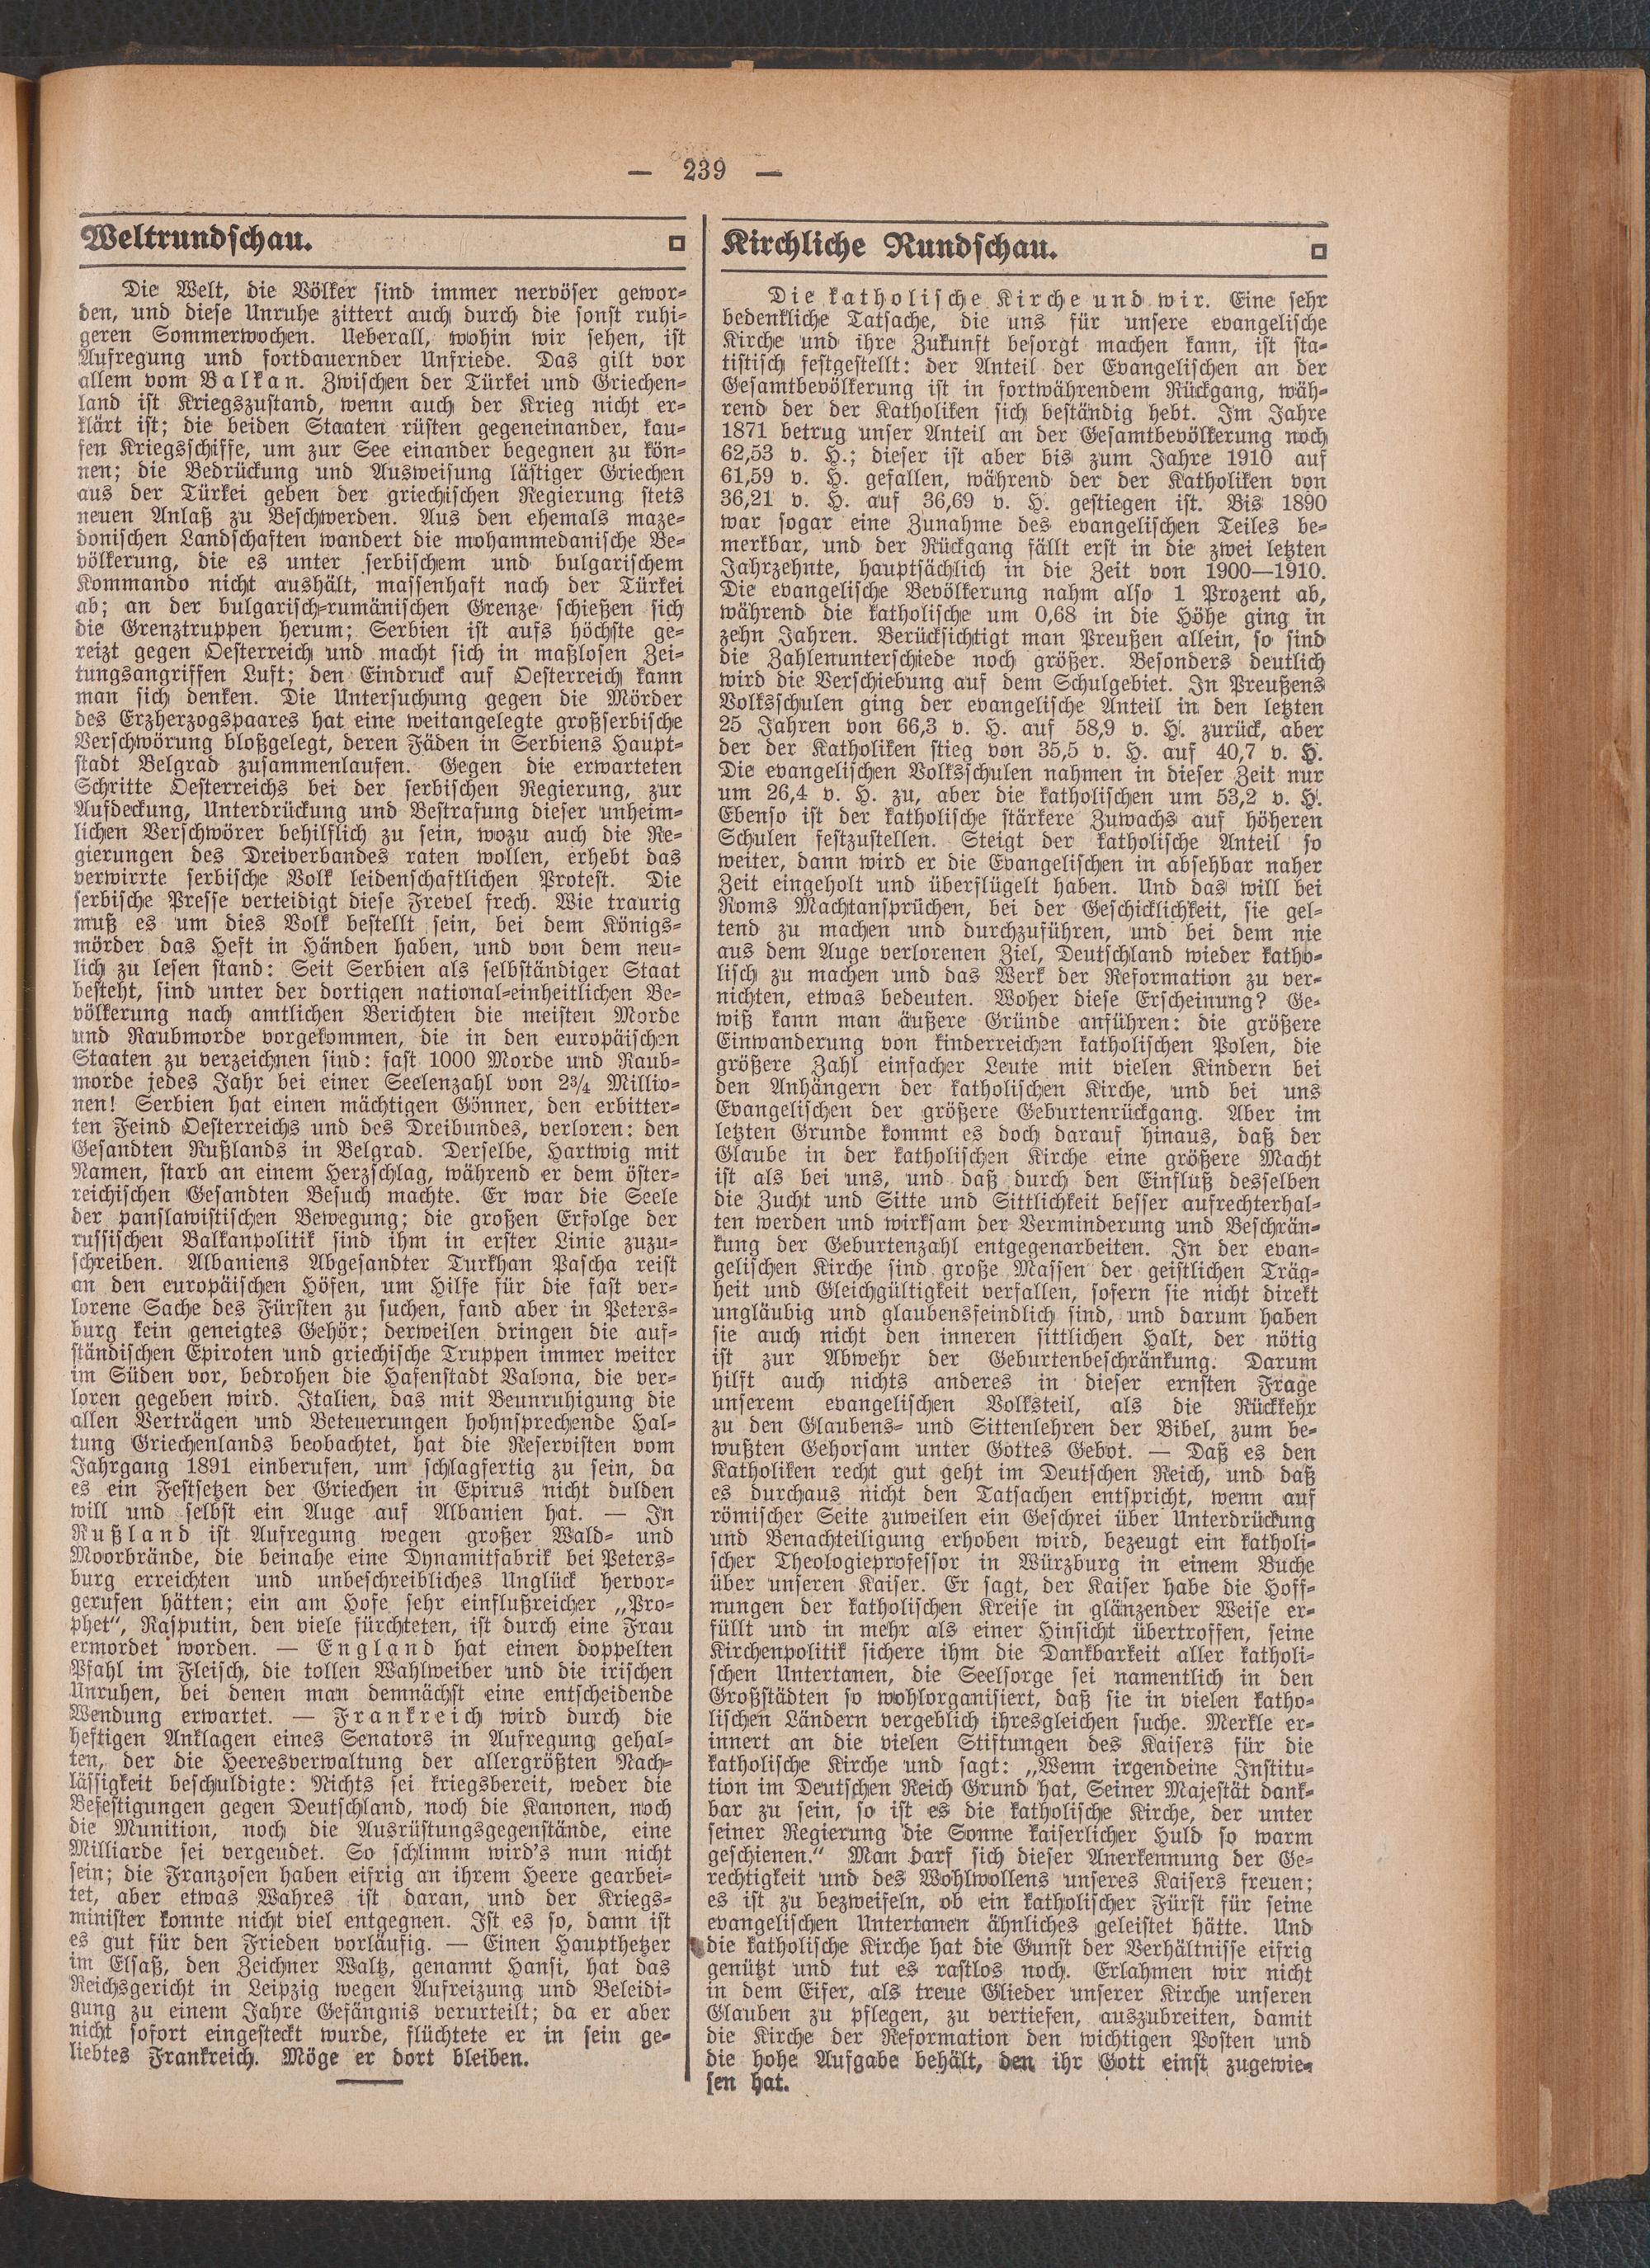 — 239 —
Weltrundschau.
Die Welt, die Völker sind immer nervöser gewor-
den, und diese Unruhe zittert auch durch die sonst ruhi-
geren Sommerwochen. Ueberall, wohin wir sehen, ist
Aufregung und fortdauernder Unfriede. Das gilt vor
allem vom Balkan. Zwischen der Türkei und Griechen-
land ist Kriegszustand, wenn auch der Krieg nicht er-
klärt ist; die beiden Staaten rüsten gegeneinander, kau-
fen Kriegsschiffe, um zur See einander begegnen zu kön-
nen; die Bedrückung und Ausweisung lästiger Griechen
aus der Türkei geben der griechischen Regierung stets
neuen Anlaß zu Beschwerden. Aus den ehemals maze-
donischen Landschaften wandert die mohammedanische Be-
völkerung, die es unter serbischem und bulgarischem
Kommando nicht aushält, massenhaft nach der Türkei
ab; an der bulgarisch-rumänischen Grenze schießen sich
die Grenztruppen herum; Serbien ist aufs höchste ge-
reizt gegen Oesterreich und macht sich in maßlosen Zei-
tungsangriffen Luft; den Eindruck auf Oesterreich kann
man sich denken. Die Untersuchung gegen die Mörder
des Erzherzogspaares hat eine weitangelegte großserbische
Verschwörung bloßgelegt, deren Fäden in Serbiens Haupt-
stadt Belgrad zusammenlaufen. Gegen die erwarteten
Schritte Oesterreichs bei der serbischen Regierung, zur
Aufdeckung, Unterdrückung und Bestrafung dieser unheim-
lichen Verschwörer behilflich zu sein, wozu auch die Re-
gierungen des Dreiverbandes raten wollen, erhebt das
verwirrte serbische Volk leidenschaftlichen Protest. Die
serbische Presse verteidigt diese Frevel frech. Wie traurig
muß es um dies Volk bestellt sein, bei dem Königs-
mörder das Heft in Händen haben, und von dem neu-
lich zu lesen stand: Seit Serbien als selbständiger Staat
besteht, sind unter der dortigen national-einheitlichen Be-
völkerung nach amtlichen Berichten die meisten Morde
und Raubmorde vorgekommen, die in den europäischen
Staaten zu verzeichnen sind: fast 1000 Morde und Raub-
morde jedes Jahr bei einer Seelenzahl von 2¾ Millio-
nen! Serbien hat einen mächtigen Gönner, den erbitter-
ten Feind Oesterreichs und des Dreibundes, verloren: den
Gesandten Rußlands in Belgrad. Derselbe, Hartwig mit
Namen, starb an einem Herzschlag, während er dem öster-
reichischen Gesandten Besuch machte. Er war die Seele
der panslawistischen Bewegung; die großen Erfolge der
russischen Balkanpolitik sind ihm in erster Linie zuzu-
schreiben. Albaniens Abgesandter Turkhan Pascha reist
an den europäischen Höfen, um Hilfe für die fast ver-
lorene Sache des Fürsten zu suchen, fand aber in Peters-
burg kein geneigtes Gehör; derweilen dringen die auf-
ständischen Epiroten und griechische Truppen immer weiter
im Süden vor, bedrohen die Hafenstadt Valona, die ver-
loren gegeben wird. Italien, das mit Beunruhigung die
allen Verträgen und Beteuerungen hohnsprechende Hal-
tung Griechenlands beobachtet, hat die Reservisten vom
Jahrgang 1891 einberufen, um schlagfertig zu sein, da
es ein Festsetzen der Griechen in Epirus nicht dulden
will und selbst ein Auge auf Albanien hat. — In
Rußland ist Aufregung wegen großer Wald- und
Moorbrände, die beinahe eine Dynamitfabrik bei Peters-
burg erreichten und unbeschreibliches Unglück hervor-
gerufen hätten; ein am Hofe sehr einflußreicher „Pro-
phet“, Rasputin, den viele fürchteten, ist durch eine Frau
ermordet worden. — England hat einen doppelten
Pfahl im Fleisch, die tollen Wahlweiber und die irischen
Unruhen, bei denen man demnächst eine entscheidende
Wendung erwartet. — Frankreich wird durch die
heftigen Anklagen eines Senators in Aufregung gehal-
ten, der die Heeresverwaltung der allergrößten Nach-
lässigkeit beschuldigte: Nichts sei kriegsbereit, weder die
Befestigungen gegen Deutschland, noch die Kanonen, noch
die Munition, noch die Ausrüstungsgegenstände, eine
Milliarde sei vergeudet. So schlimm wird's nun nicht
sein; die Franzosen haben eifrig an ihrem Heere gearbei-
tet, aber etwas Wahres ist daran, und der Kriegs-
minister konnte nicht viel entgegnen. Ist es so, dann ist
es gut für den Frieden vorläufig. — Einen Haupthetzer
im Elsaß, den Zeichner Waltz, genannt Hansi, hat das
Reichsgericht in Leipzig wegen Aufreizung und Beleidi-
gung zu einem Jahre Gefängnis verurteilt; da er aber
nicht sofort eingesteckt wurde, flüchtete er in sein ge-
liebtes Frankreich. Möge er dort bleiben.
Kirchliche Rundschau.
Die katholische Kirche und wir. Eine sehr
bedenkliche Tatsache, die uns für unsere evangelische
Kirche und ihre Zukunft besorgt machen kann, ist sta-
tistisch festgestellt: der Anteil der Evangelischen an der
Gesamtbevölkerung ist in fortwährendem Rückgang, wäh-
rend der der Katholiken sich beständig hebt. Im Jahre
1871 betrug unser Anteil an der Gesamtbevölkerung noch
62,53 v. H.; dieser ist aber bis zum Jahre 1910 auf
61,59 v. H. gefallen, während der der Katholiken von
36,21 v. H. auf 36,69 v. H. gestiegen ist. Bis 1890
war sogar eine Zunahme des evangelischen Teiles be-
merkbar, und der Rückgang fällt erst in die zwei letzten
Jahrzehnte, hauptsächlich in die Zeit von 1900—1910.
Die evangelische Bevölkerung nahm also 1 Prozent ab,
während die katholische um 0,68 in die Höhe ging in
zehn Jahren. Berücksichtigt man Preußen allein, so sind
die Zahlenunterschiede noch größer. Besonders deutlich
wird die Verschiebung auf dem Schulgebiet. In Preußens
Volksschulen ging der evangelische Anteil in den letzten
25 Jahren von 66,3 v. H. auf 58,9 v. H. zurück, aber
der der Katholiken stieg von 35,5 v. H. auf 40,7 v. H.
Die evangelischen Volksschulen nahmen in dieser Zeit nur
um 26,4 v. H. zu, aber die katholischen um 53,2 v. H.
Ebenso ist der katholische stärkere Zuwachs auf höheren
Schulen festzustellen. Steigt der katholische Anteil so
weiter, dann wird er die Evangelischen in absehbar naher
Zeit eingeholt und überflügelt haben. Und das will bei
Roms Machtansprüchen, bei der Geschicklichkeit, sie gel-
tend zu machen und durchzuführen, und bei dem nie
aus dem Auge verlorenen Ziel, Deutschland wieder katho-
lisch zu machen und das Werk der Reformation zu ver-
nichten, etwas bedeuten. Woher diese Erscheinung? Ge-
wiß kann man äußere Gründe anführen: die größere
Einwanderung von kinderreichen katholischen Polen, die
größere Zahl einfacher Leute mit vielen Kindern bei
den Anhängern der katholischen Kirche, und bei uns
Evangelischen der größere Geburtenrückgang. Aber im
letzten Grunde kommt es doch darauf hinaus, daß der
Glaube in der katholischen Kirche eine größere Macht
ist als bei uns, und daß durch den Einfluß desselben
die Zucht und Sitte und Sittlichkeit besser aufrechterhal-
ten werden und wirksam der Verminderung und Beschrän-
kung der Geburtenzahl entgegenarbeiten. In der evan-
gelischen Kirche sind große Massen der geistlichen Träg-
heit und Gleichgültigkeit verfallen, sofern sie nicht direkt
ungläubig und glaubensfeindlich sind, und darum haben
sie auch nicht den inneren sittlichen Halt, der nötig
ist zur Abwehr der Geburtenbeschränkung. Darum
hilft auch nichts anderes in dieser ernsten Frage
unserem evangelischen Volksteil, als die Rückkehr
zu den Glaubens- und Sittenlehren der Bibel, zum be-
wußten Gehorsam unter Gottes Gebot. — Daß es den
Katholiken recht gut geht im Deutschen Reich, und daß
es durchaus nicht den Tatsachen entspricht, wenn auf
römischer Seite zuweilen ein Geschrei über Unterdrückung
und Benachteiligung erhoben wird, bezeugt ein katholi-
scher Theologieprofessor in Würzburg in einem Buche
über unseren Kaiser. Er sagt, der Kaiser habe die Hoff-
nungen der katholischen Kreise in glänzender Weise er-
füllt und in mehr als einer Hinsicht übertroffen, seine
Kirchenpolitik sichere ihm die Dankbarkeit aller katholi-
schen Untertanen, die Seelsorge sei namentlich in den
Großstädten so wohlorganisiert, daß sie in vielen katho-
lischen Ländern vergeblich ihresgleichen suche. Merkle er-
innert an die vielen Stiftungen des Kaisers für die
katholische Kirche und sagt: „Wenn irgendeine Institu-
tion im Deutschen Reich Grund hat, Seiner Majestät dank-
bar zu sein, so ist es die katholische Kirche, der unter
seiner Regierung die Sonne kaiserlicher Huld so warm
geschienen.“ Man darf sich dieser Anerkennung der Ge-
rechtigkeit und des Wohlwollens unseres Kaisers freuen;
es ist zu bezweifeln, ob ein katholischer Fürst für seine
evangelischen Untertanen ähnliches geleistet hätte. Und
die katholische Kirche hat die Gunst der Verhältnisse eifrig
genützt und tut es rastlos noch. Erlahmen wir nicht
in dem Eifer, als treue Glieder unserer Kirche unseren
Glauben zu pflegen, zu vertiefen, auszubreiten, damit
die Kirche der Reformation den wichtigen Posten und
die hohe Aufgabe behält, den ihr Gott einst zugewie-
sen hat.